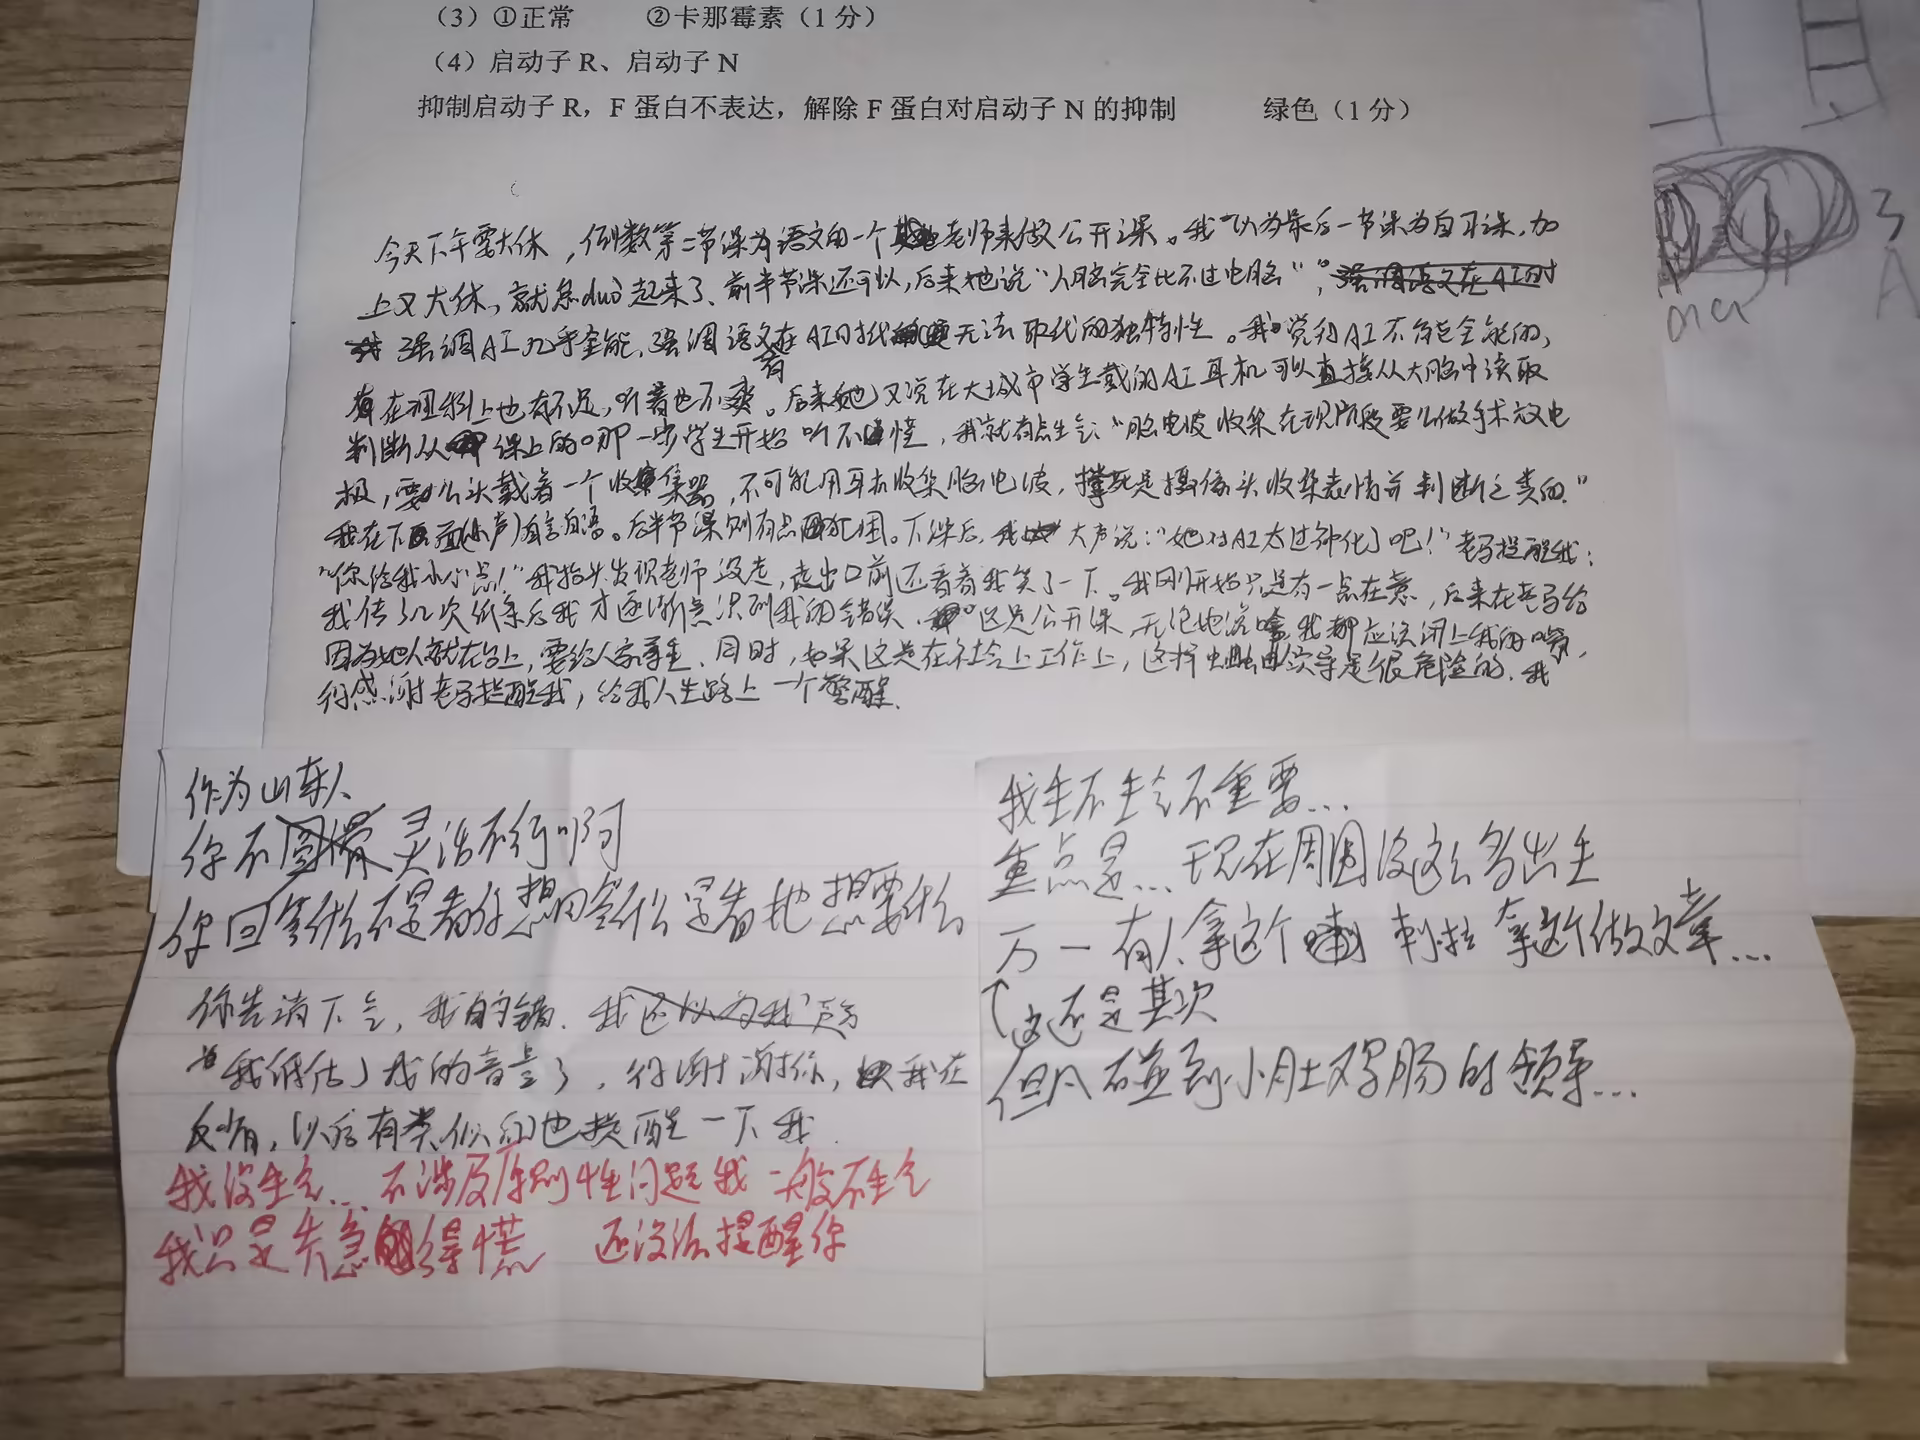 (3)①正常 ②卡那霉素(1分)
(4)启动子 R、启动子 N
抑制启动子 R，F 蛋白不表达，解除 F 蛋白对启动子 N 的抑制 绿色(1分)
今天下午要大休，倒数第二节课为语文的一个老师来做公开课。我以为最后一节课为自习课，加
上又大休，就怠duò起来了、前半节课还可以，后来她说“人脑完全比不过电脑”，强调语文在AI时
强调AI几乎全能，强调语文在AI时代有无法取代的独特性。我觉得AI不是全能的，
在理科上也有不足，听着也不爽。后来她又说在大城市学生戴的AI耳机可以直接从大脑中读取
判断从课上的哪一步学生开始听不懂，我就有点生气：“脑电波收集在现阶段要么做手术放电
极，要么头戴着一个收集器，不可能用耳机收集脑电波，撑死是摄像头收集表情并判断之类的。”
我在下面(小声)自言自语。后半节课则有点犯困。下课后，大声说：“她对AI太过神化了吧！”老马提醒我：
“你给我小小点！”我抬头发现老师没走，走出门前还看着我笑了一下。我刚开始只是有一点在意，后来在老马给
我传了几次纸条后我才逐渐意识到我的错误、这是公开课，无论她说啥我都应该闭上我的嘴，
因为她人就在台上，要给人家尊重、同时，如果这是在社会上工作上，这样蛐蛐领导是很危险的、我
得感谢老马提醒我，给我人生路上一个警醒.
作为山东人
你不圆滑灵活不行啊
你回答什么不是看你想回答什么是看他想要什么
你先消下气，我的错. 我还以为我声
我低估了我的音量了，得谢谢你，我在
反省，以后有类似的也提醒一下我.
我没生气... 不涉及原则性问题我一般不生气
我只是失急得慌 还没法提醒你
我生不生气不重要...
重点是... 现在周围没这么多出生
万一有人拿这个 刺拉 拿这个做文章...
↑这还是其次
但凡碰到小肚鸡肠的领导...
3
A